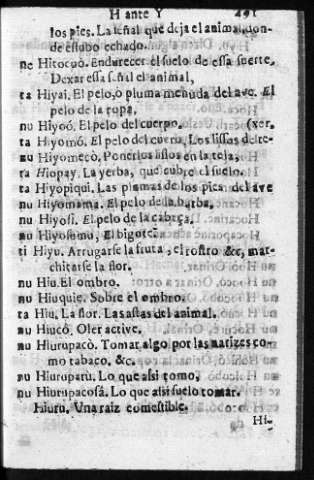 H ante Y 491
los pies. La señal que deja el animal, don-
de estubo echado.
ne Hitocuò. Endurecer el suelo de essa suerte,
Dexar essa señal el animal,
ta Hiyai. El pelo, o pluma menuda del ave. El
pelo de la ropa,
nu Hiyoó. El pelo del cuerpo. (xer.
ta Hiyomó. El pelo del cuerno, Los lissos de te-
nu Hiyomecò, Ponerlos lisos en la tela,
ta Hiopay. La yerba, que cubre el suelo.
ta Hiyopiqui. Las plumas de los pies del ave
nu Hiyomama. El pelo de la barba.
nu Hiyosi. El pelo de la cabeça.
nu Hiyosemu, El bigote.
ti Hiyu. Arrugarse la fruta, el rostro &c, mar-
chitarse la flor.
nu Hiu. El ombro.
nu Hiuquie. Sobre el ombro.
ta Hiu, La flor. Las astas del animal.
nu Hiucó, Oler active.
nu Hiurupacò. Tomar algo por las narizes co-
mo tabaco, &c.
nu Hiuruparù. Lo que assi tomo,
nu Hiurupacosâ. Lo que assi suelo tomar.
Hiuru. Una raiz comestible.
Hi-